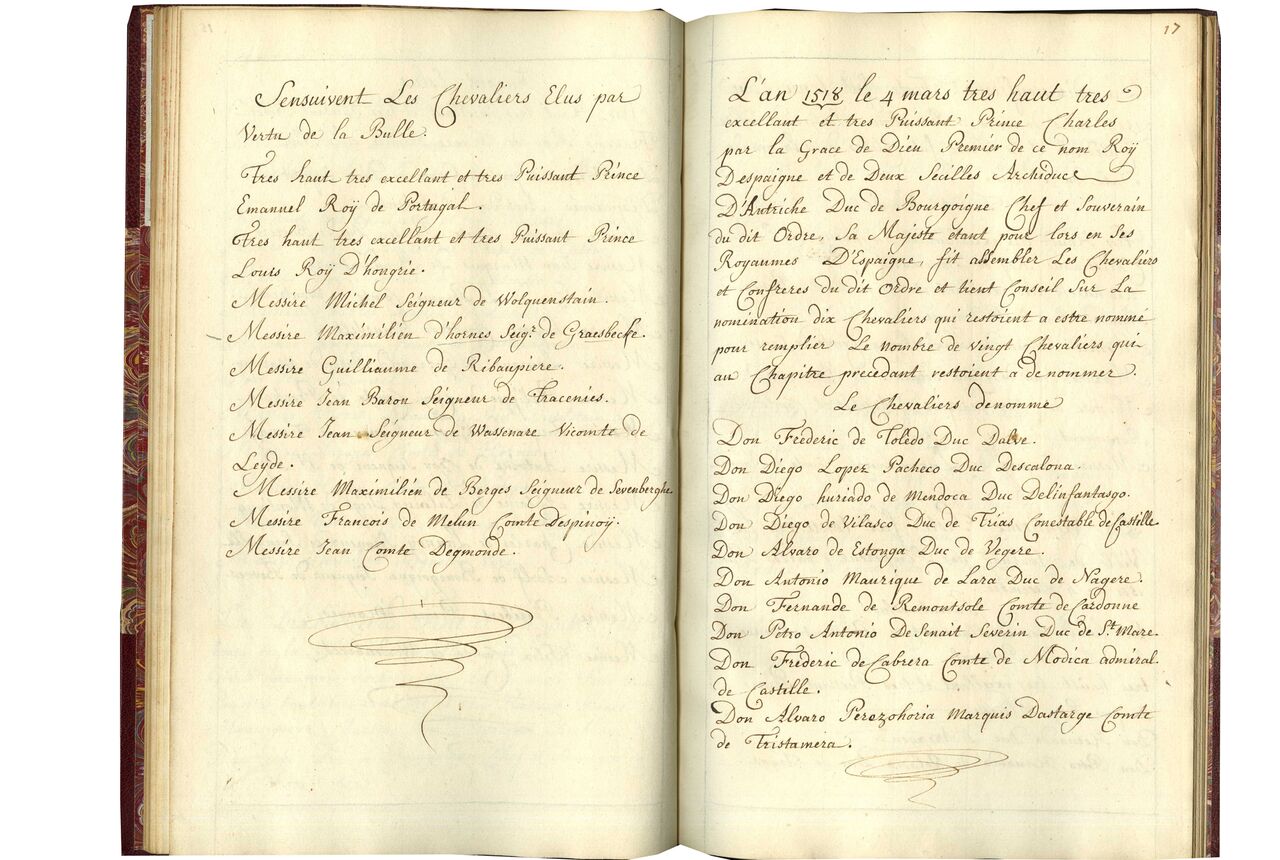 Sensuivent Les Chevaliers Elus par
Vertu de la Bulle.
Tres haut tres excellant et tres Puissant Prince
Emanuel Roÿ de Portugal.
Tres haut tres excellant et tres Puissant Prince
Louis Roÿ D'hongrie.
Messire Michel Seigneur de Wolquenstain.
Messire Maximilien d'hornes Seigr. de Graesbecke.
Messire Guilliaume de Ribaupiere.
Messire Jean Baron Seigneur de Tracenies.
Messire Jean Seigneur de Wassenare Vicomte de
Leyde.
Messire Maximilien de Berges Seigneur de Sevenberghe.
Messire Francois de Melun Comte Despinoÿ.
Messire Jean Comte Degmonde.
17
L'an 1518 le 4 mars tres haut tres
excellant et tres Puissant Prince Charles
par la Grace de Dieu Premier de ce nom Roÿ
Despaigne et de Deux Secilles Archiduc
D'Autriche Duc de Bourgoigne Chef et Souverain
du dit Ordre, Sa Majeste etant pour lors en Ses
Royaumes D'Espaigne, fit assembler Les Chevaliers
et Confreres du dit Ordre et tient Conseil Sur La
nomination dix Chevaliers qui restoient a estre nommé
pour remplier Le nombre de vingt Chevaliers qui
au Chapitre precedant restoient a denommer.
Le Chevaliers denommé
Don Frederic de Toledo Duc Dalve.
Don Diego Lopez Pacheco Duc Descalona.
Don Diego huriado de Mendoca Duc Delinfantasgo.
Don Diego de Vilasco Duc de Trias Conestable de Castille
Don Alvaro de Estonga Duc de Vegere.
Don Antonio Maurique de Lara Duc de Nagere.
Don Fernande de Remontsole Comte de Cardonne
Don Petro Antonio De Senait Severin Duc de St. Mare.
Don Frederic de Cabrera Comte de Modica admiral
de Castille.
Don Alvaro Perezohoria Marquis Dastarge Comte
de Tristamera.